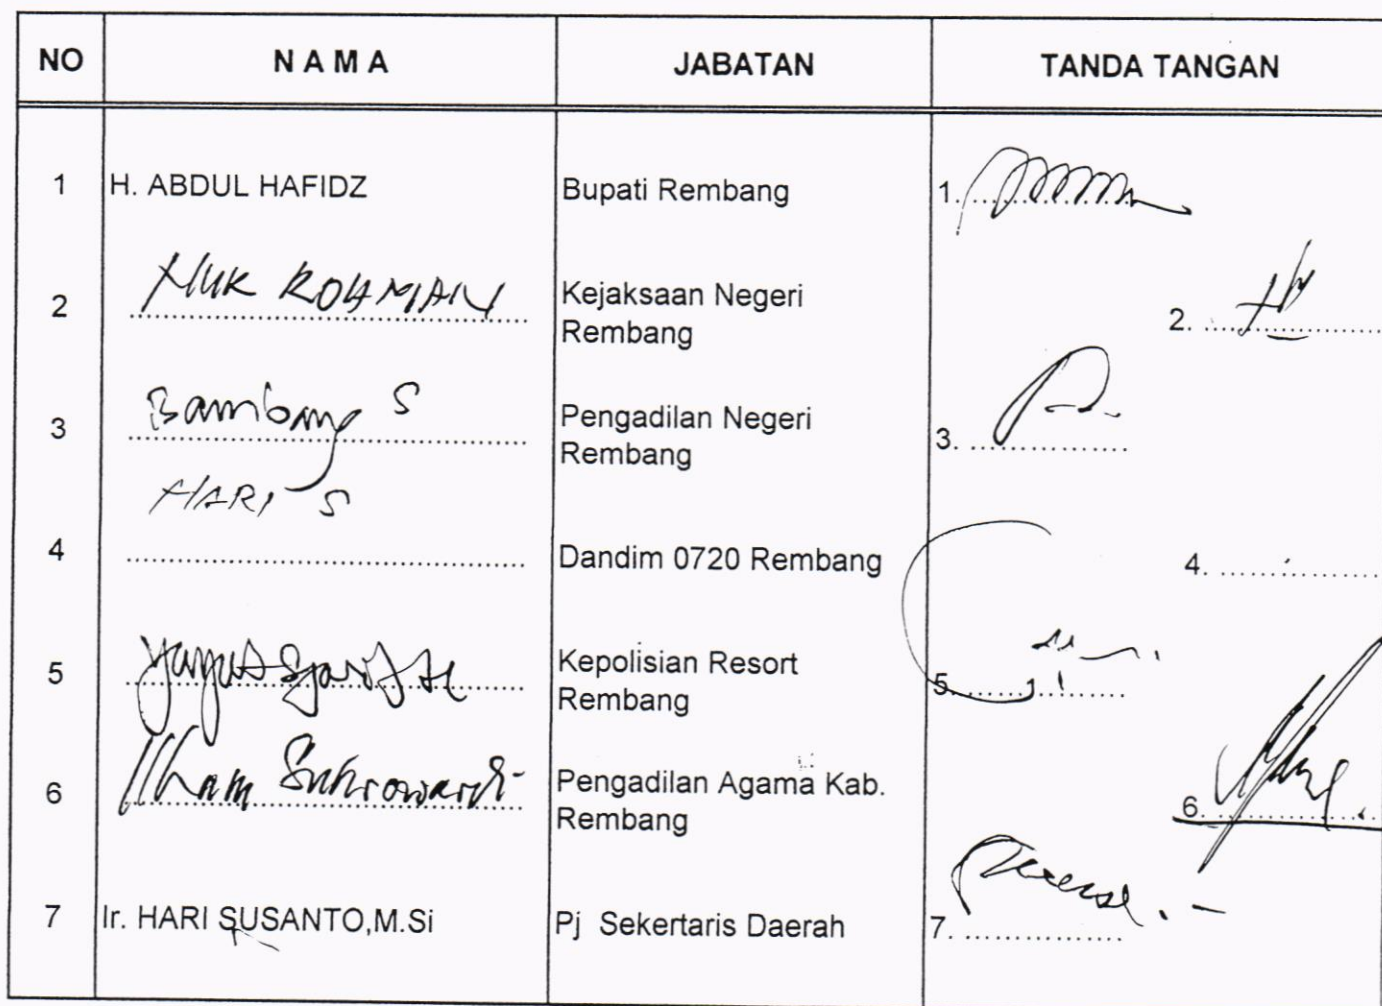 NO NAMA JABATAN TANDA TANGAN
1 H. ABDUL HAFIDZ Bupati Rembang 1.
2 NUR ROHMAN Kejaksaan Negeri 2.
Rembang
3 Bambang S Pengadilan Negeri 3.
Rembang
HARI S
4 Dandim 0720 Rembang 4.
5 Kepolisian Resort 5.
Rembang
6 Ilham Suhrowardi Pengadilan Agama Kab. 6.
Rembang
7 Ir. HARI SUSANTO,M.Si Pj Sekertaris Daerah 7.